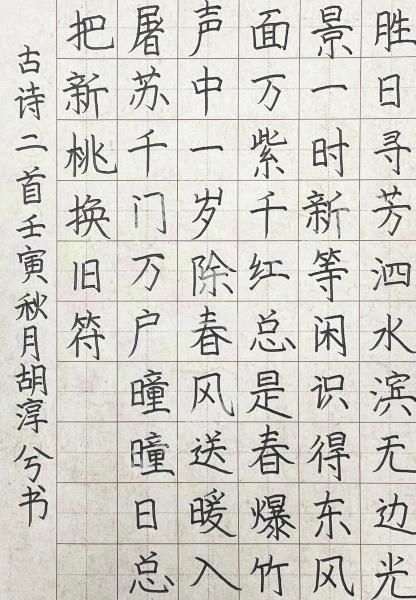 胜日寻芳泗水滨无边光
景一时新等闲识得东风
面万紫千红总是春爆竹
声中一岁除春风送暖入
屠苏千门万户曈曈日总
把新桃换旧符
古诗二首壬寅秋月胡淳兮书